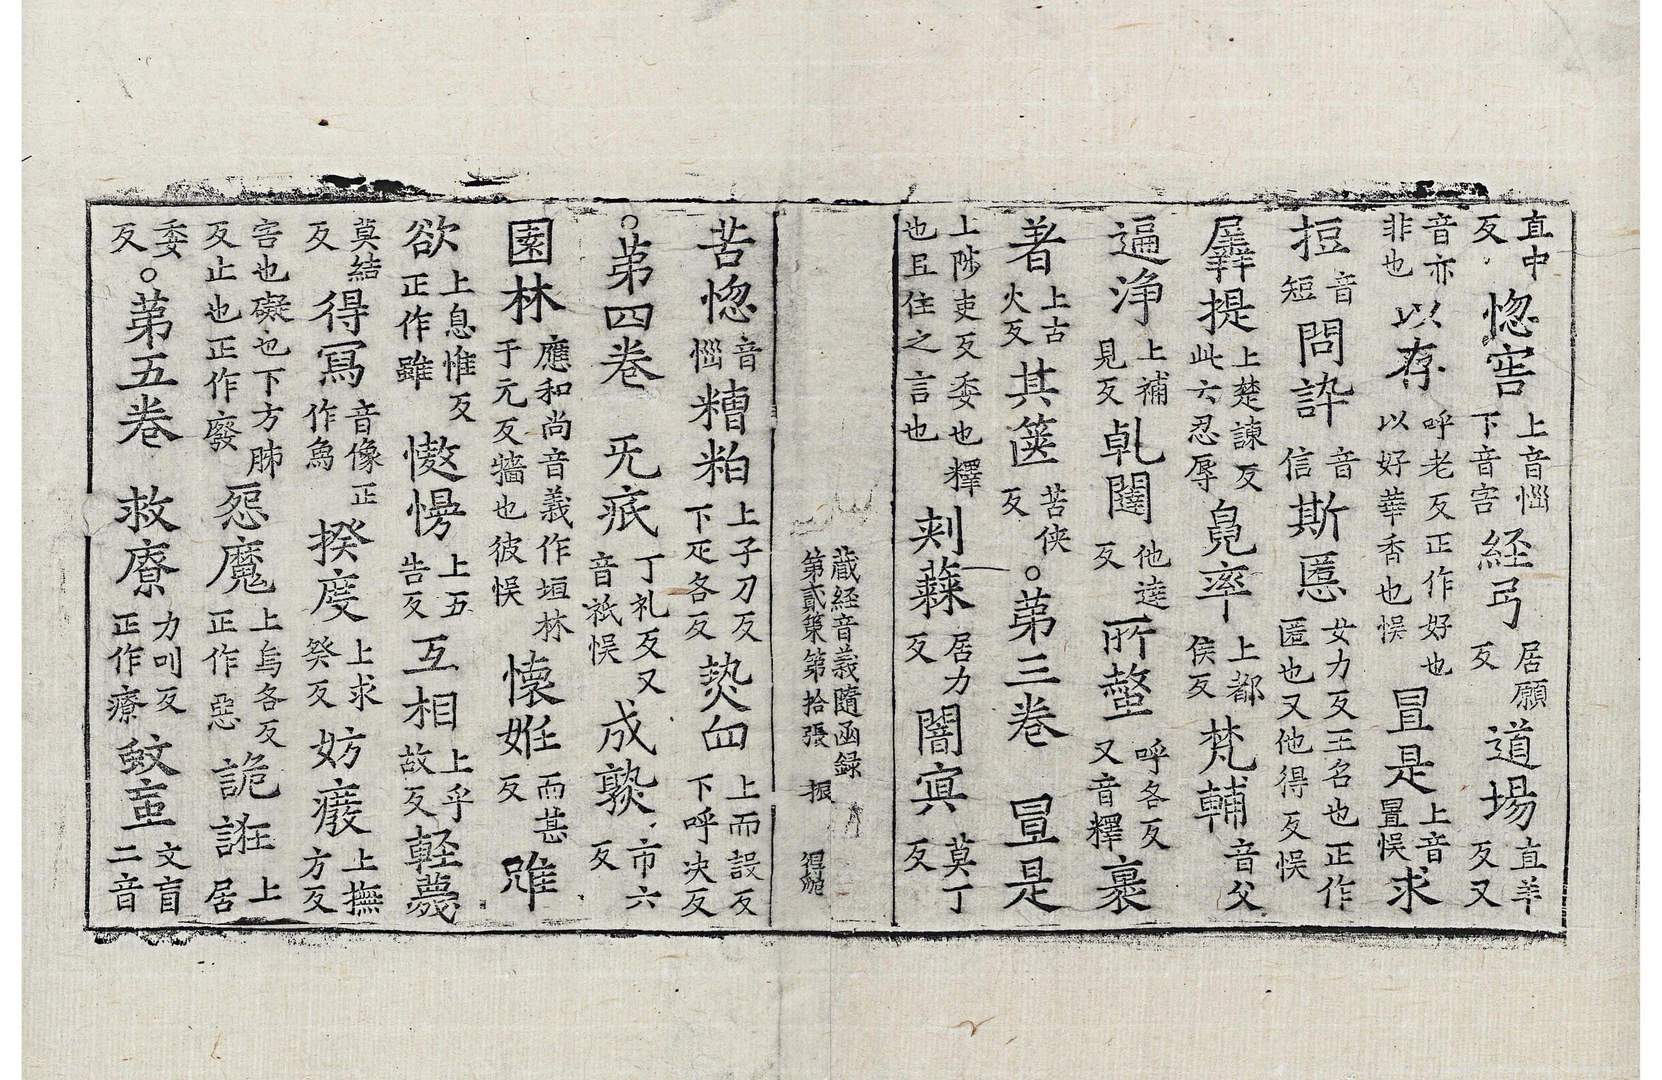 直中反惚害上音惱下音害経弓居願反道場直羊反又
音亦非也以存呼老反正作好也以好華香也悮冝是上音置悮求
挋音短問誶音信斯慝女力反王名也正作匿也又他得反悮
羼提上楚諫反此六忍辱鳧率上都侯反梵輔音父
逼浄上補見反乹闥他達反所螫呼各反又音釋裹
著上古火反其篋苦侠反。苐三卷冝是
上陟吏反委也釋也且住之言也㓨蕀居力反闇㝠莫丁反
藏経音義隨函録
第貳筞第拾張 振
苦惚音惱糟粕上子刀反下疋各反𤎅血上而設反下呼决反
。苐四卷 旡疷丁礼反又音祇悮成𤍨市六反
園林應和尚音義作垣林于元反墻也彼悮懐姙而甚反雖
欲上息惟反正作雖慠慢上五告反互相上乎故反輕蔑
莫結反得冩音像正作舄揆度上求癸反妨癈上撫方反
害也礙也下方肺反止也正作廢惌魔上烏各反正作惡詭誑上居
委反。苐五卷 救療力叫反正作療蚊䖟文盲二音